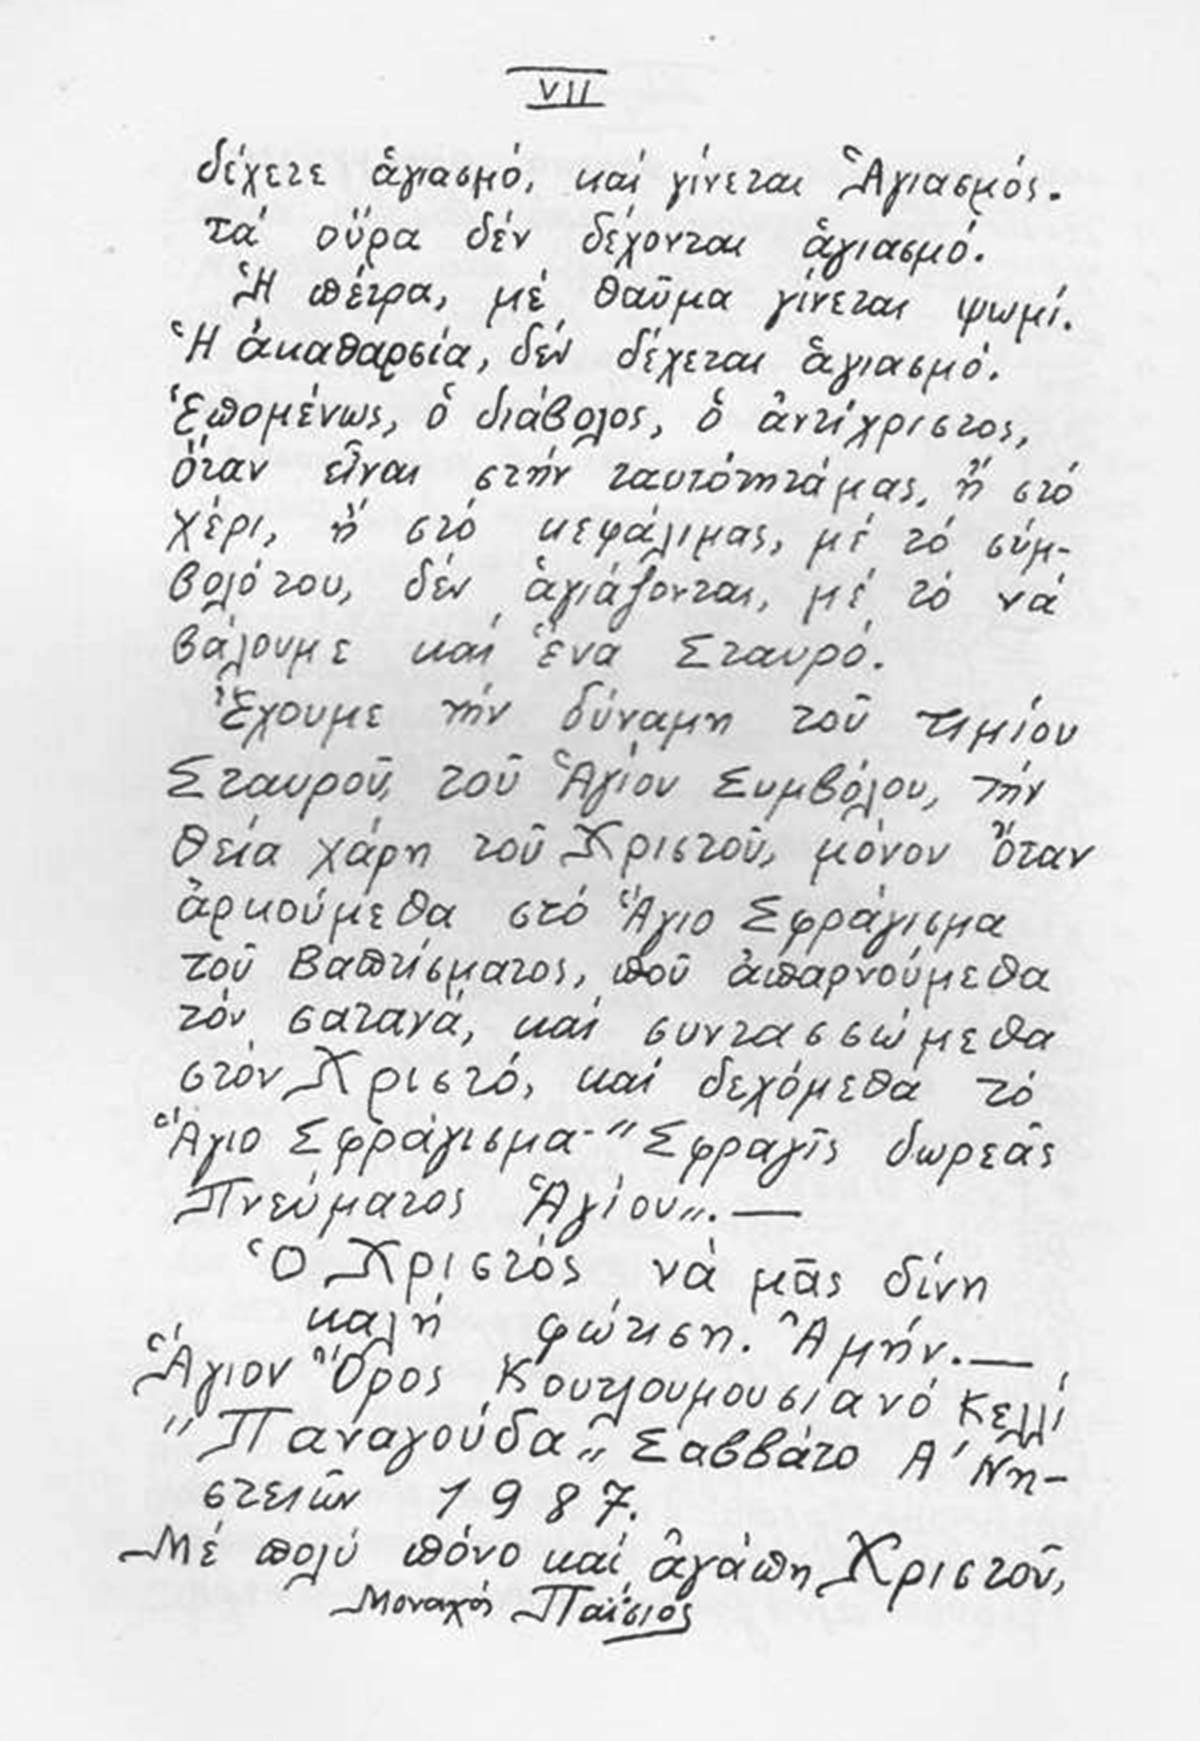 VII
δέχετε ἁγιασμό, καί γίνεται Ἁγιασμός.
τά οὔρα δέν δέχονται ἁγιασμό.
Ἡ πέτρα, μέ θαῦμα γίνεται ψωμί.
Ἡ ἀκαθαρσία, δέν δέχεται ἁγιασμό.
Ἑπομένως, ὁ διάβολος, ὁ ἀντίχριστος,
ὅταν εἶναι στήν ταυτότητάμας, ἤ στό
χέρι, ἤ στό κεφάλιμας, μέ τό σύμ-
βολότου, δέν ἁγιάζονται, μέ τό νά
βάλουμε καί ἕνα Σταυρό.
Ἔχουμε τήν δύναμη τοῦ τιμίου
Σταυροῦ, τοῦ Ἁγίου Συμβόλου, τήν
θεία χάρη τοῦ Χριστοῦ, μόνον ὅταν
ἀρκούμεθα στό Ἅγιο Σφράγισμα
τοῦ Βαπτίσματος, ποῦ ἀπαρνούμεθα
τόν σατανά, καί συντασσώμεθα
στόν Χριστό, καί δεχόμεθα τό
Ἅγιο Σφράγισμα-"Σφραγῖς δωρεᾶς
Πνεύματος Ἁγίου„.—
Ὁ Χριστός νά μᾶς δίνη
καλή φώτιση. Ἀμήν.—
Ἅγιον Ὄρος Κουτλουμουσιανό Κελλί
"Παναγούδα„ Σαββάτο Α΄ Νη-
στειῶν 1987.
Μέ πολύ πόνο καί ἀγάπη Χριστοῦ,
Μοναχός Παΐσιος